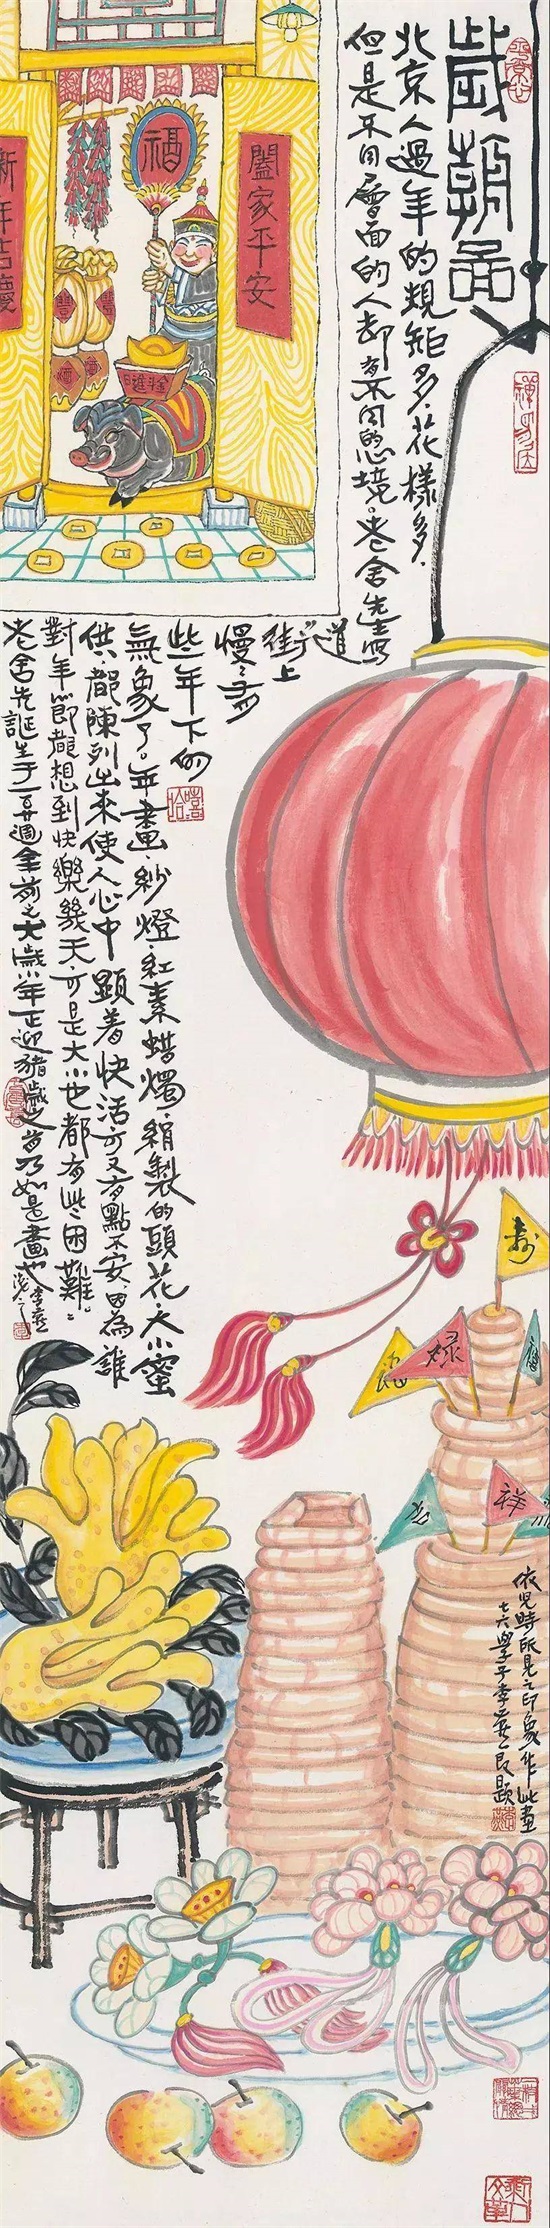 歲朝圖
北京人過年的規矩多，花樣多，
但是不同層面的人却有不同的心境。老舍先生寫
道
街上
慢慢有
些年下的
氣象了。年畫、紗燈、紅素蜡燭、絹製的頭花、大小蜜
供，都陳列出來，使人心中顯着快活，可又有點不安，因為誰
對年節都想到快樂幾天，可是大小也都有些困難。
老舍先誕生于一百廿週年前之大歲小年正迎豬歲之首乃如是畫也
闔家平安
新年吉慶
福
日進斗金
豐
豐
酒
酒
壽
祿
福
吉
祥
依兒時所見之印象作此畫
七六學子李燕又題
嘻哈